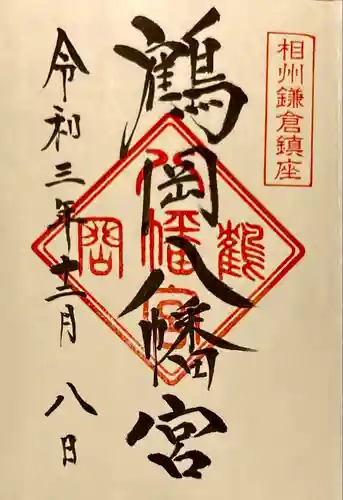 相州鎌倉鎮座
鶴岡八幡宮
令和三年十二月八日
鶴岡八幡宮